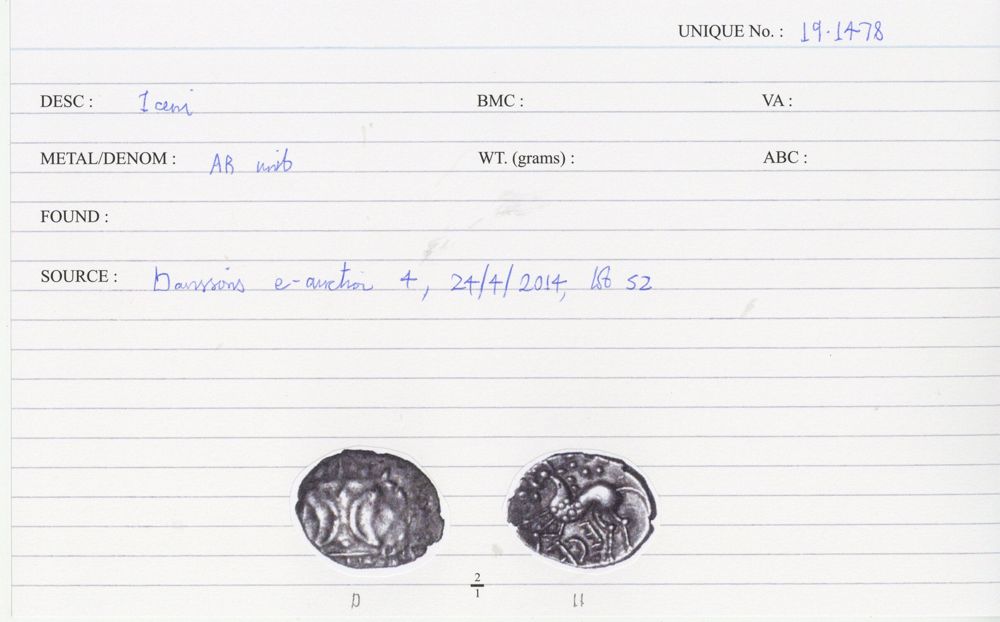 UNIQUE No. : 19.1478
DESC : Iceni BMC : VA :
METAL/DENOM : AR unit WT. (grams) : ABC :
FOUND :
SOURCE : e-auction 4, 24/4/2014, lot 52
ECE
2
1